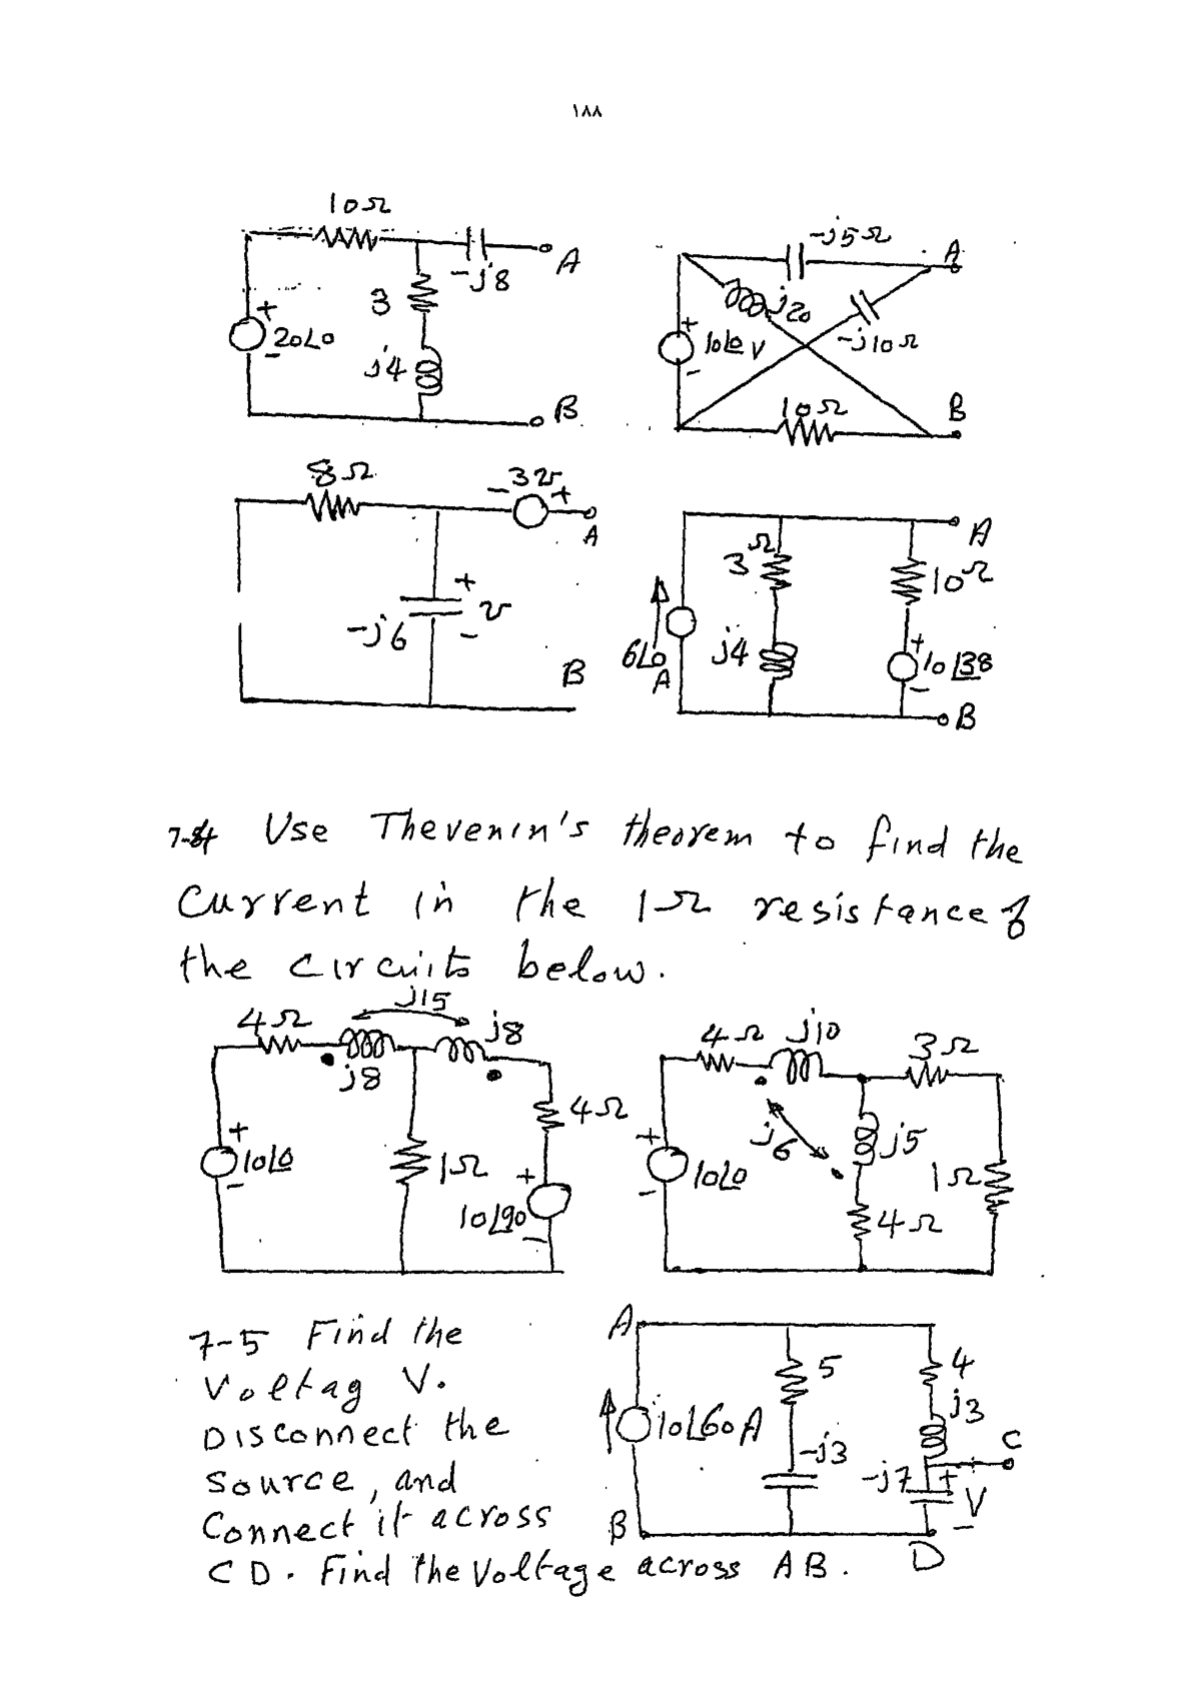 ١٨٨
10Ω
-j8
A
3
+
20∠0
-
j4
B
-j5Ω
A
j20
+
10∠0 V
-
-j10Ω
10Ω
B
8Ω
- 3v +
A
+
v
-
-j6
B
A
3Ω
10Ω
6∠0
A
j4
+
10∠38
-
B
Use Thevenin's theorem to find the
Current in the 1Ω resistance of
the circuits below.
j15
4Ω
j8
j8
4Ω
+
10∠0
-
1Ω
+
10∠90
-
4Ω
j10
3Ω
j6
j5
+
10∠0
-
1Ω
4Ω
7-5 Find the
Voltag V.
Disconnect the
Source, and
Connect it across
CD. Find the Voltage across AB.
A
5
4
j3
10∠60 A
C
-j3
-j7
+
V
-
B
D